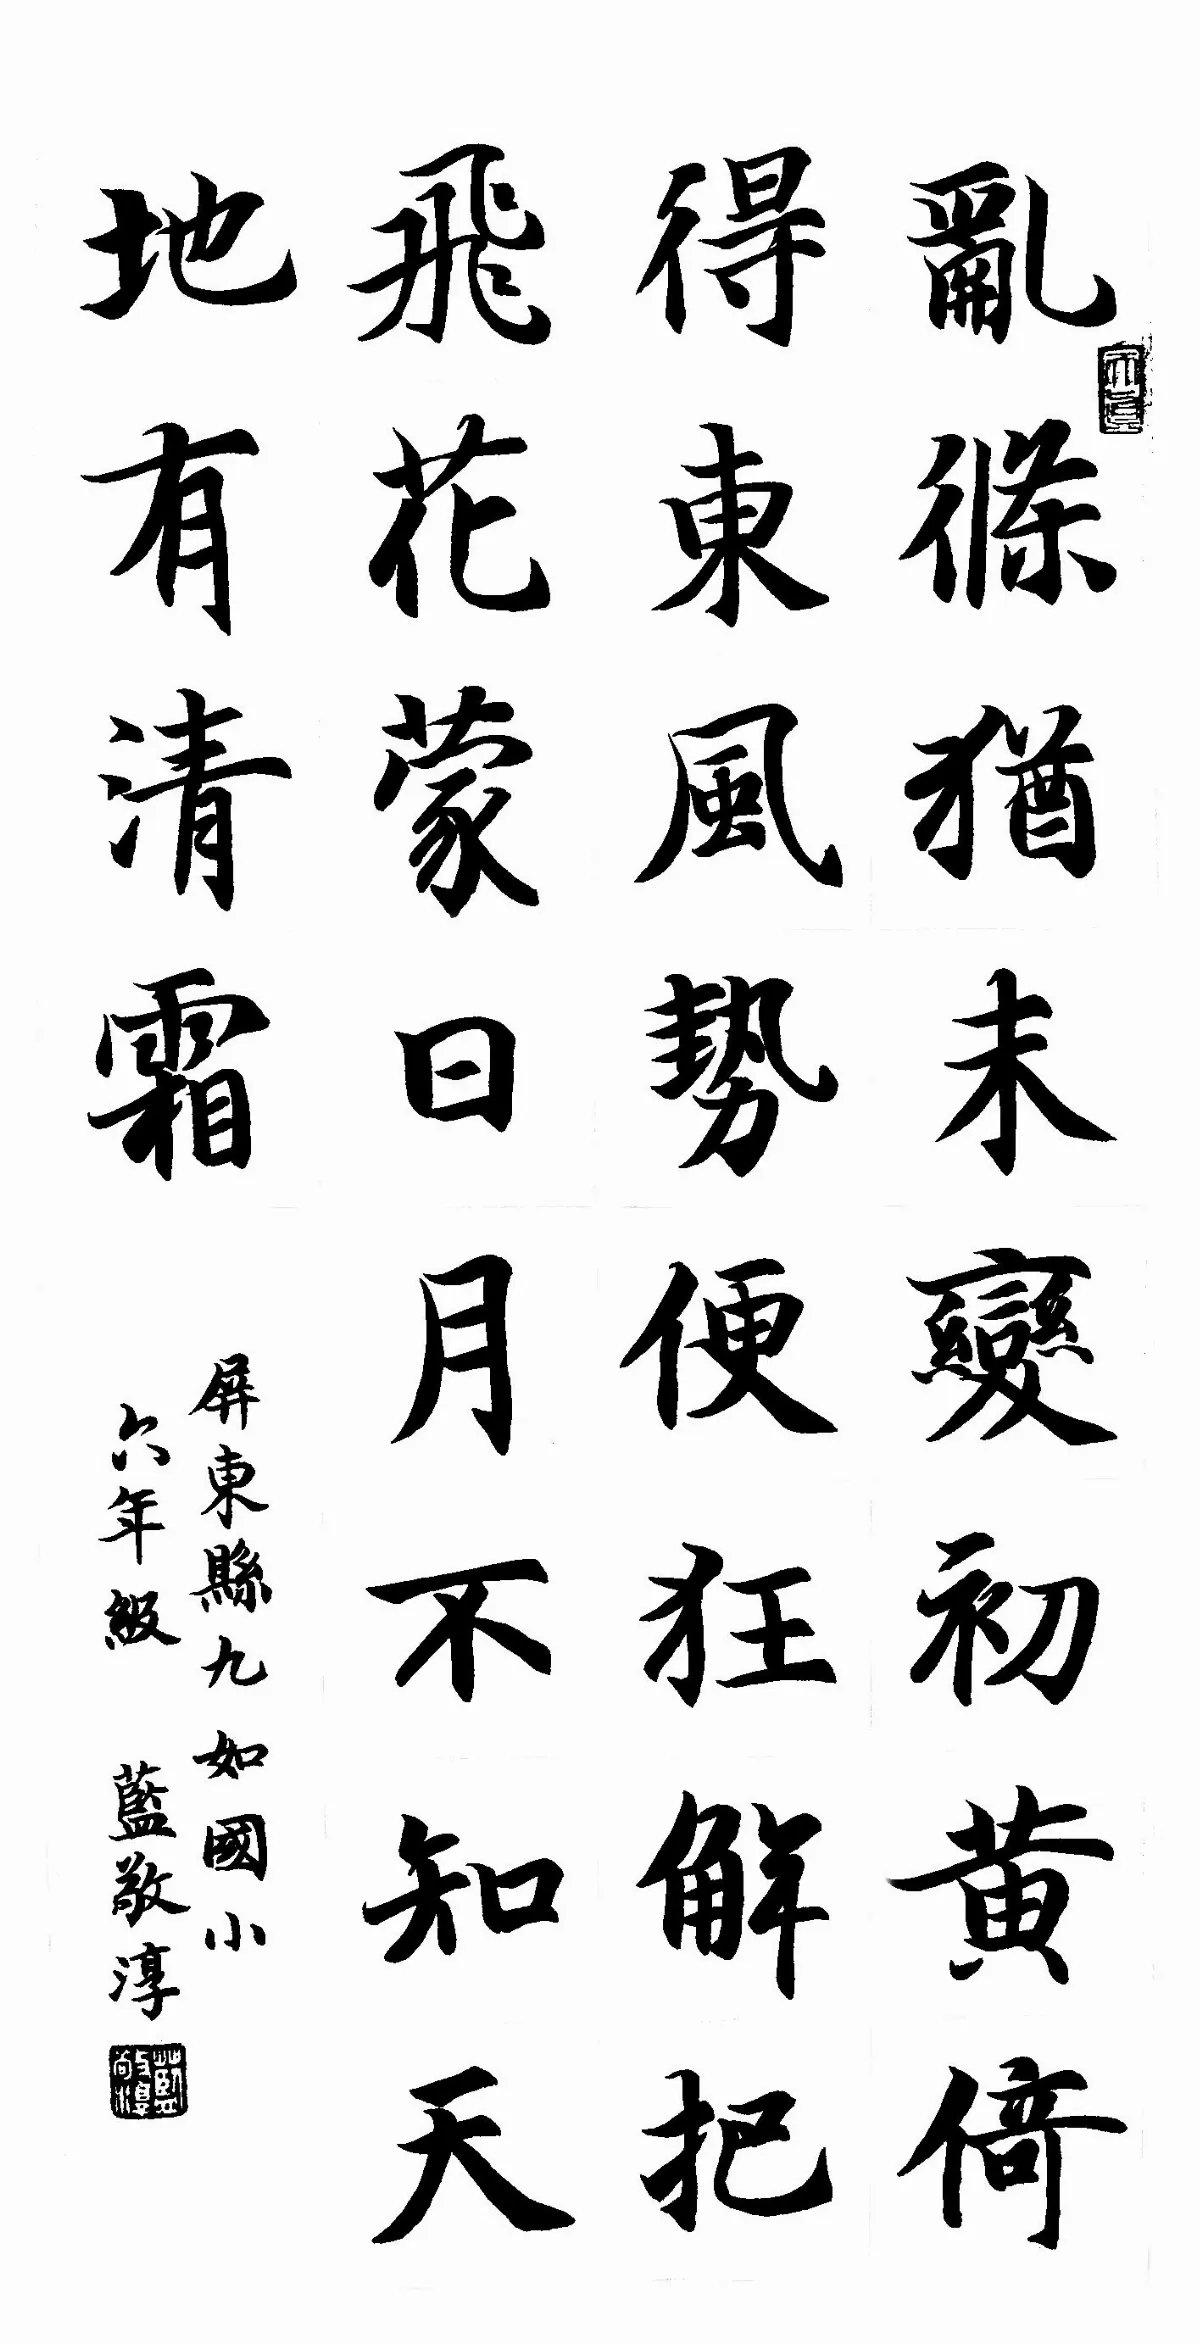 亂條猶未變初黃倚
得東風勢便狂解把
飛花蒙日月不知天
地有清霜
屏東縣九如國小
六年級 藍敬淳
藍敬淳